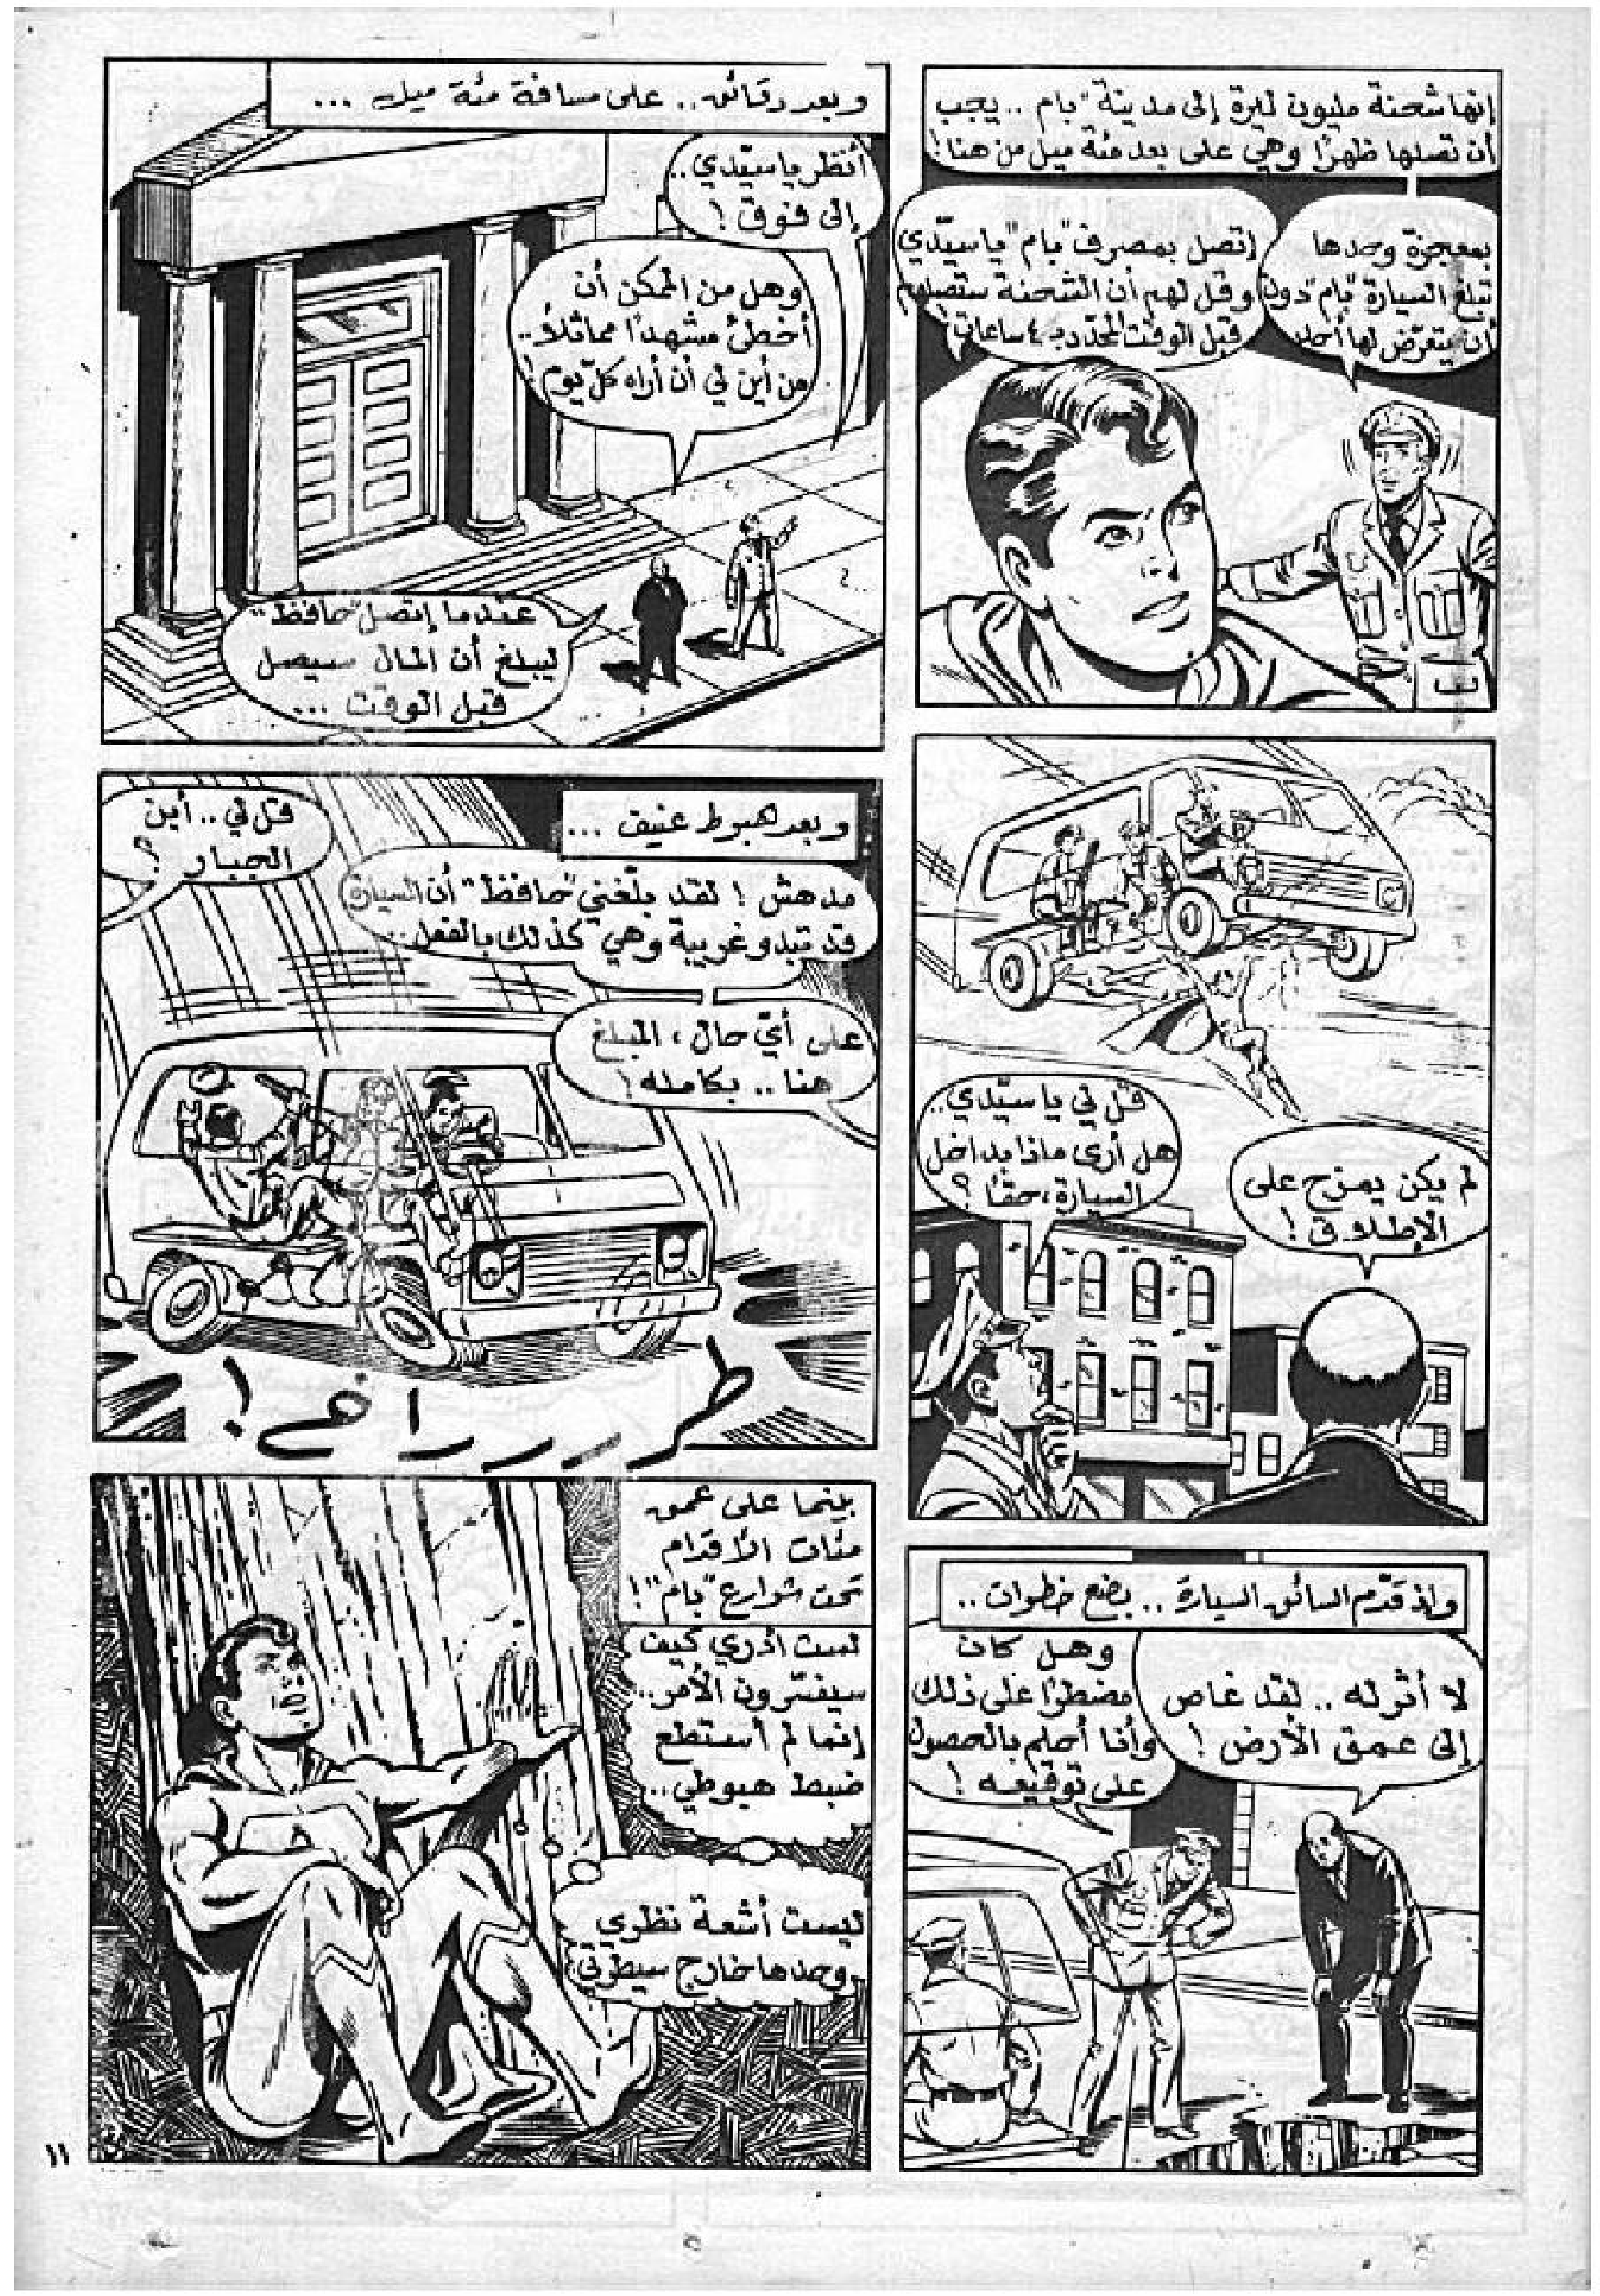 إنها شحنة مليون ليرة إلى مدينة "بام".. يجب
أن تصلها ظهرًا وهي على بعد مئة ميل من هنا!
بمعجزة وحدها
تبلغ السيارة "بام" دون
أن يتعرّض لها أحد
إتصل بمصرف "بام" يا سيّدي
وقل لهم أن الشحنة ستصلهم
قبل الوقت المحدد بـ ٤ ساعات!
وبعد دقائق.. على مسافة مئة ميل ...
أنظر يا سيّدي..
إلى فوق!
وهل من الممكن أن
أخطئ مشهدًا مماثلاً..
من أين لي أن أراه كلّ يوم!
عندما إتصل "حافظ"
ليبلغ أن المال سيصل
قبل الوقت ...
قل لي يا سيّدي..
هل أرى ماذا بداخل
السيارة، حقًا؟
لم يكن يمزح على
الإطلاق!
وبعد هبوط عنيف ...
قل لي.. أين
الجبار؟
مدهش! لقد بلّغني "حافظ" أن السيارة
قد تبدو غريبة وهي كذلك بالفعل..
على أيّ حال، المبلغ
هنا.. بكامله!
طررراخ!
وإذ قدّم السائق السيارة.. بضع خطوات..
لا أثر له.. لقد غاص
إلى عمق الأرض!
وهل كان
مضطرًا على ذلك
وأنا أحلم بالحصول
على توقيعه!
بينما على عمق
مئات الأقدام
تحت شوارع "بام"!
لست أدري كيف
سيفسّرون الأمر..
إنما لم أستطع
ضبط هبوطي..
ليست أشعة نظري
وحدها خارج سيطرتي!
١١